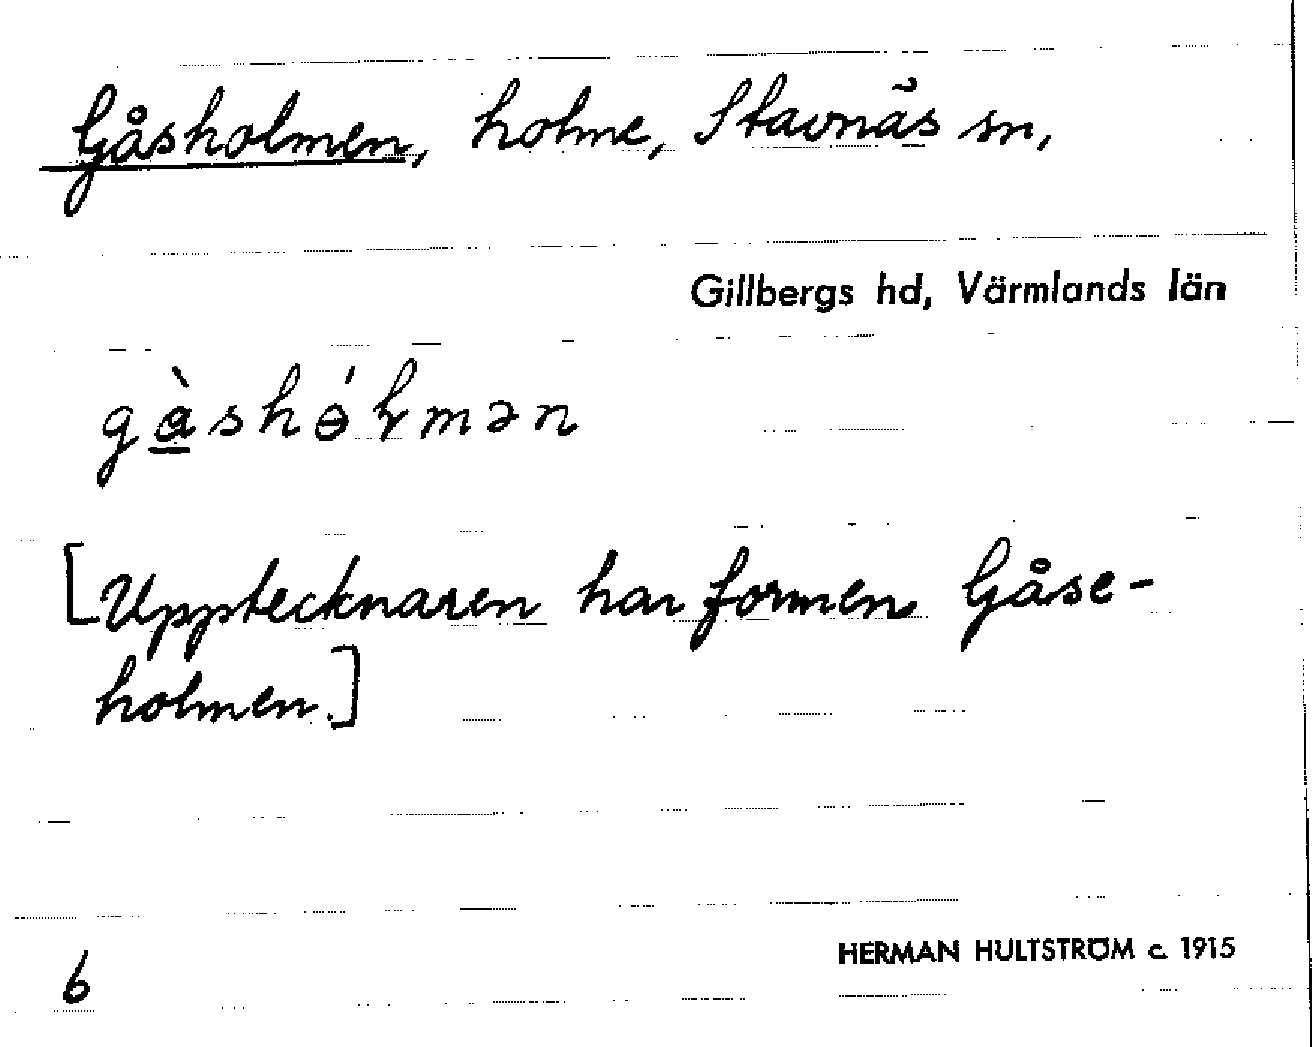 Gåsholmen, holme, Stavnäs sn,
Gillbergs hd, Värmlands län
[Upptecknaren har formen Gåse-
holmen.]
HERMAN HULTSTRÖM c. 1915
6